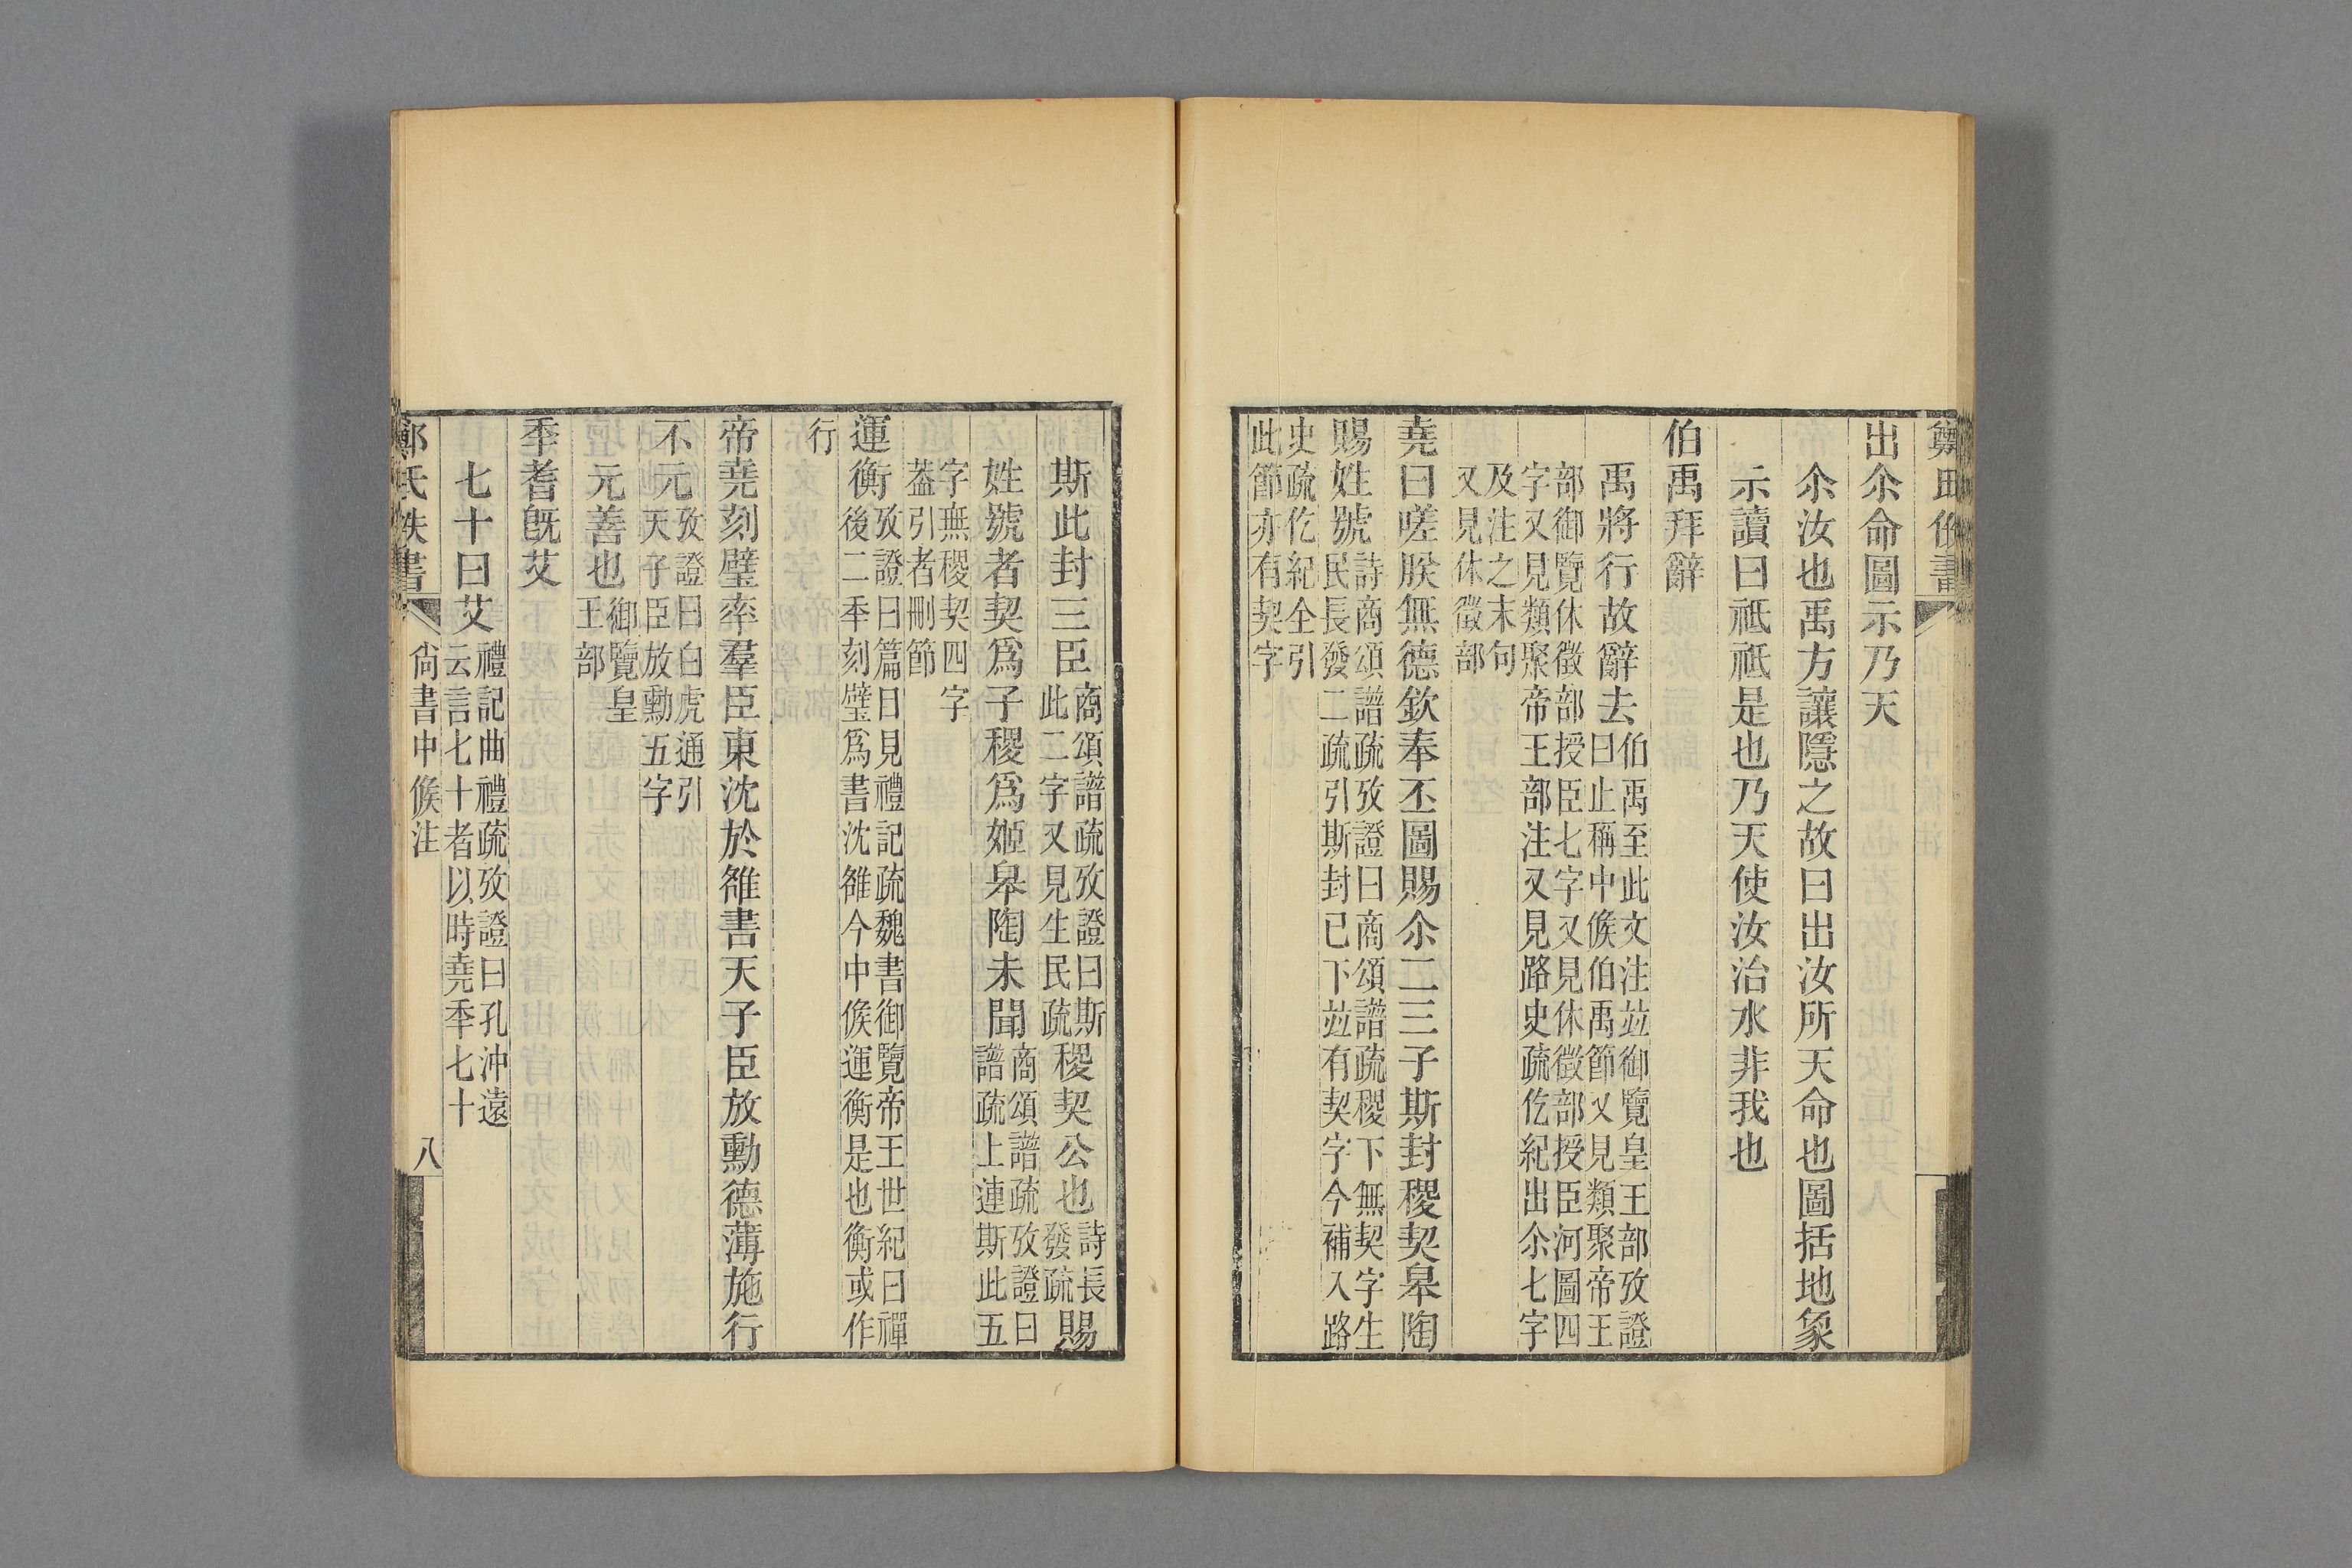 出尒命圖示乃天
尒汝也禹方讓隱之故曰出汝所天命也圖括地象
示讀曰祗祗是也乃天使汝治水非我也
伯禹拜辭
禹將行故辭去伯禹至此文注竝御覽皇王部攷證
曰止稱中候伯禹節又見類聚帝王
部御覽休徵部授臣七字又見休徵部授臣河圖四
字又見類聚帝王部注又見路史疏仡紀出尒七字
及注之末句
又見休徵部
堯曰嗟朕無德欽奉丕圖賜尒二三子斯封稷契皋陶
賜姓號詩商頌譜疏攷證曰商頌譜疏稷下無契字生
民長發二疏引斯封已下竝有契字今補入路
史疏仡紀全引
此節亦有契字
斯此封三臣商頌譜疏攷證曰斯
此二字又見生民疏稷契公也詩長
發疏賜
姓號者契爲子稷爲姬皋陶未聞商頌譜疏攷證曰
譜疏上連斯此五
字無稷契四字
葢引者刪節
運衡攷證曰篇目見禮記疏魏書御覽帝王世紀曰禪
後二秊刻璧爲書沈雒今中候運衡是也衡或作
行
帝堯刻璧率羣臣東沈於雒書天子臣放勳德薄施行
不元攷證曰白虎通引
天子臣放勳五字
元善也御覽皇
王部
秊耆旣艾
七十曰艾禮記曲禮疏攷證曰孔沖遠
云言七十者以時堯秊七十
鄭氏佚書 尙書中候注 八